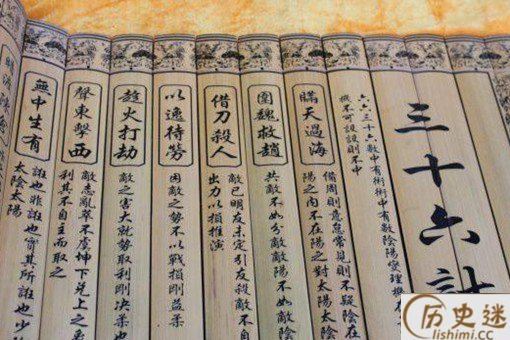 三十六計
六六三十六數中有術術中有數陰陽燮理機
機不可設設則不中
瞞天過海
備周則意怠常見則不疑陰在
陽之内不在陽之對太陽太陰
圍魏救趙
共敵不如分敵敵陽不如敵陰
借刀殺人
敵已明友未定引友殺敵不自
出力以損推演
以逸待勞
困敵之勢不以戰損剛益柔
趁火打劫
敵之害大就勢取利剛決柔也
聲東擊西
敵志亂萃不虞坤下兌上之象
利其不自主而取之
無中生有
誑也非誑也實其所誑也少
太陰太陽
历史迷
lishimi.cc